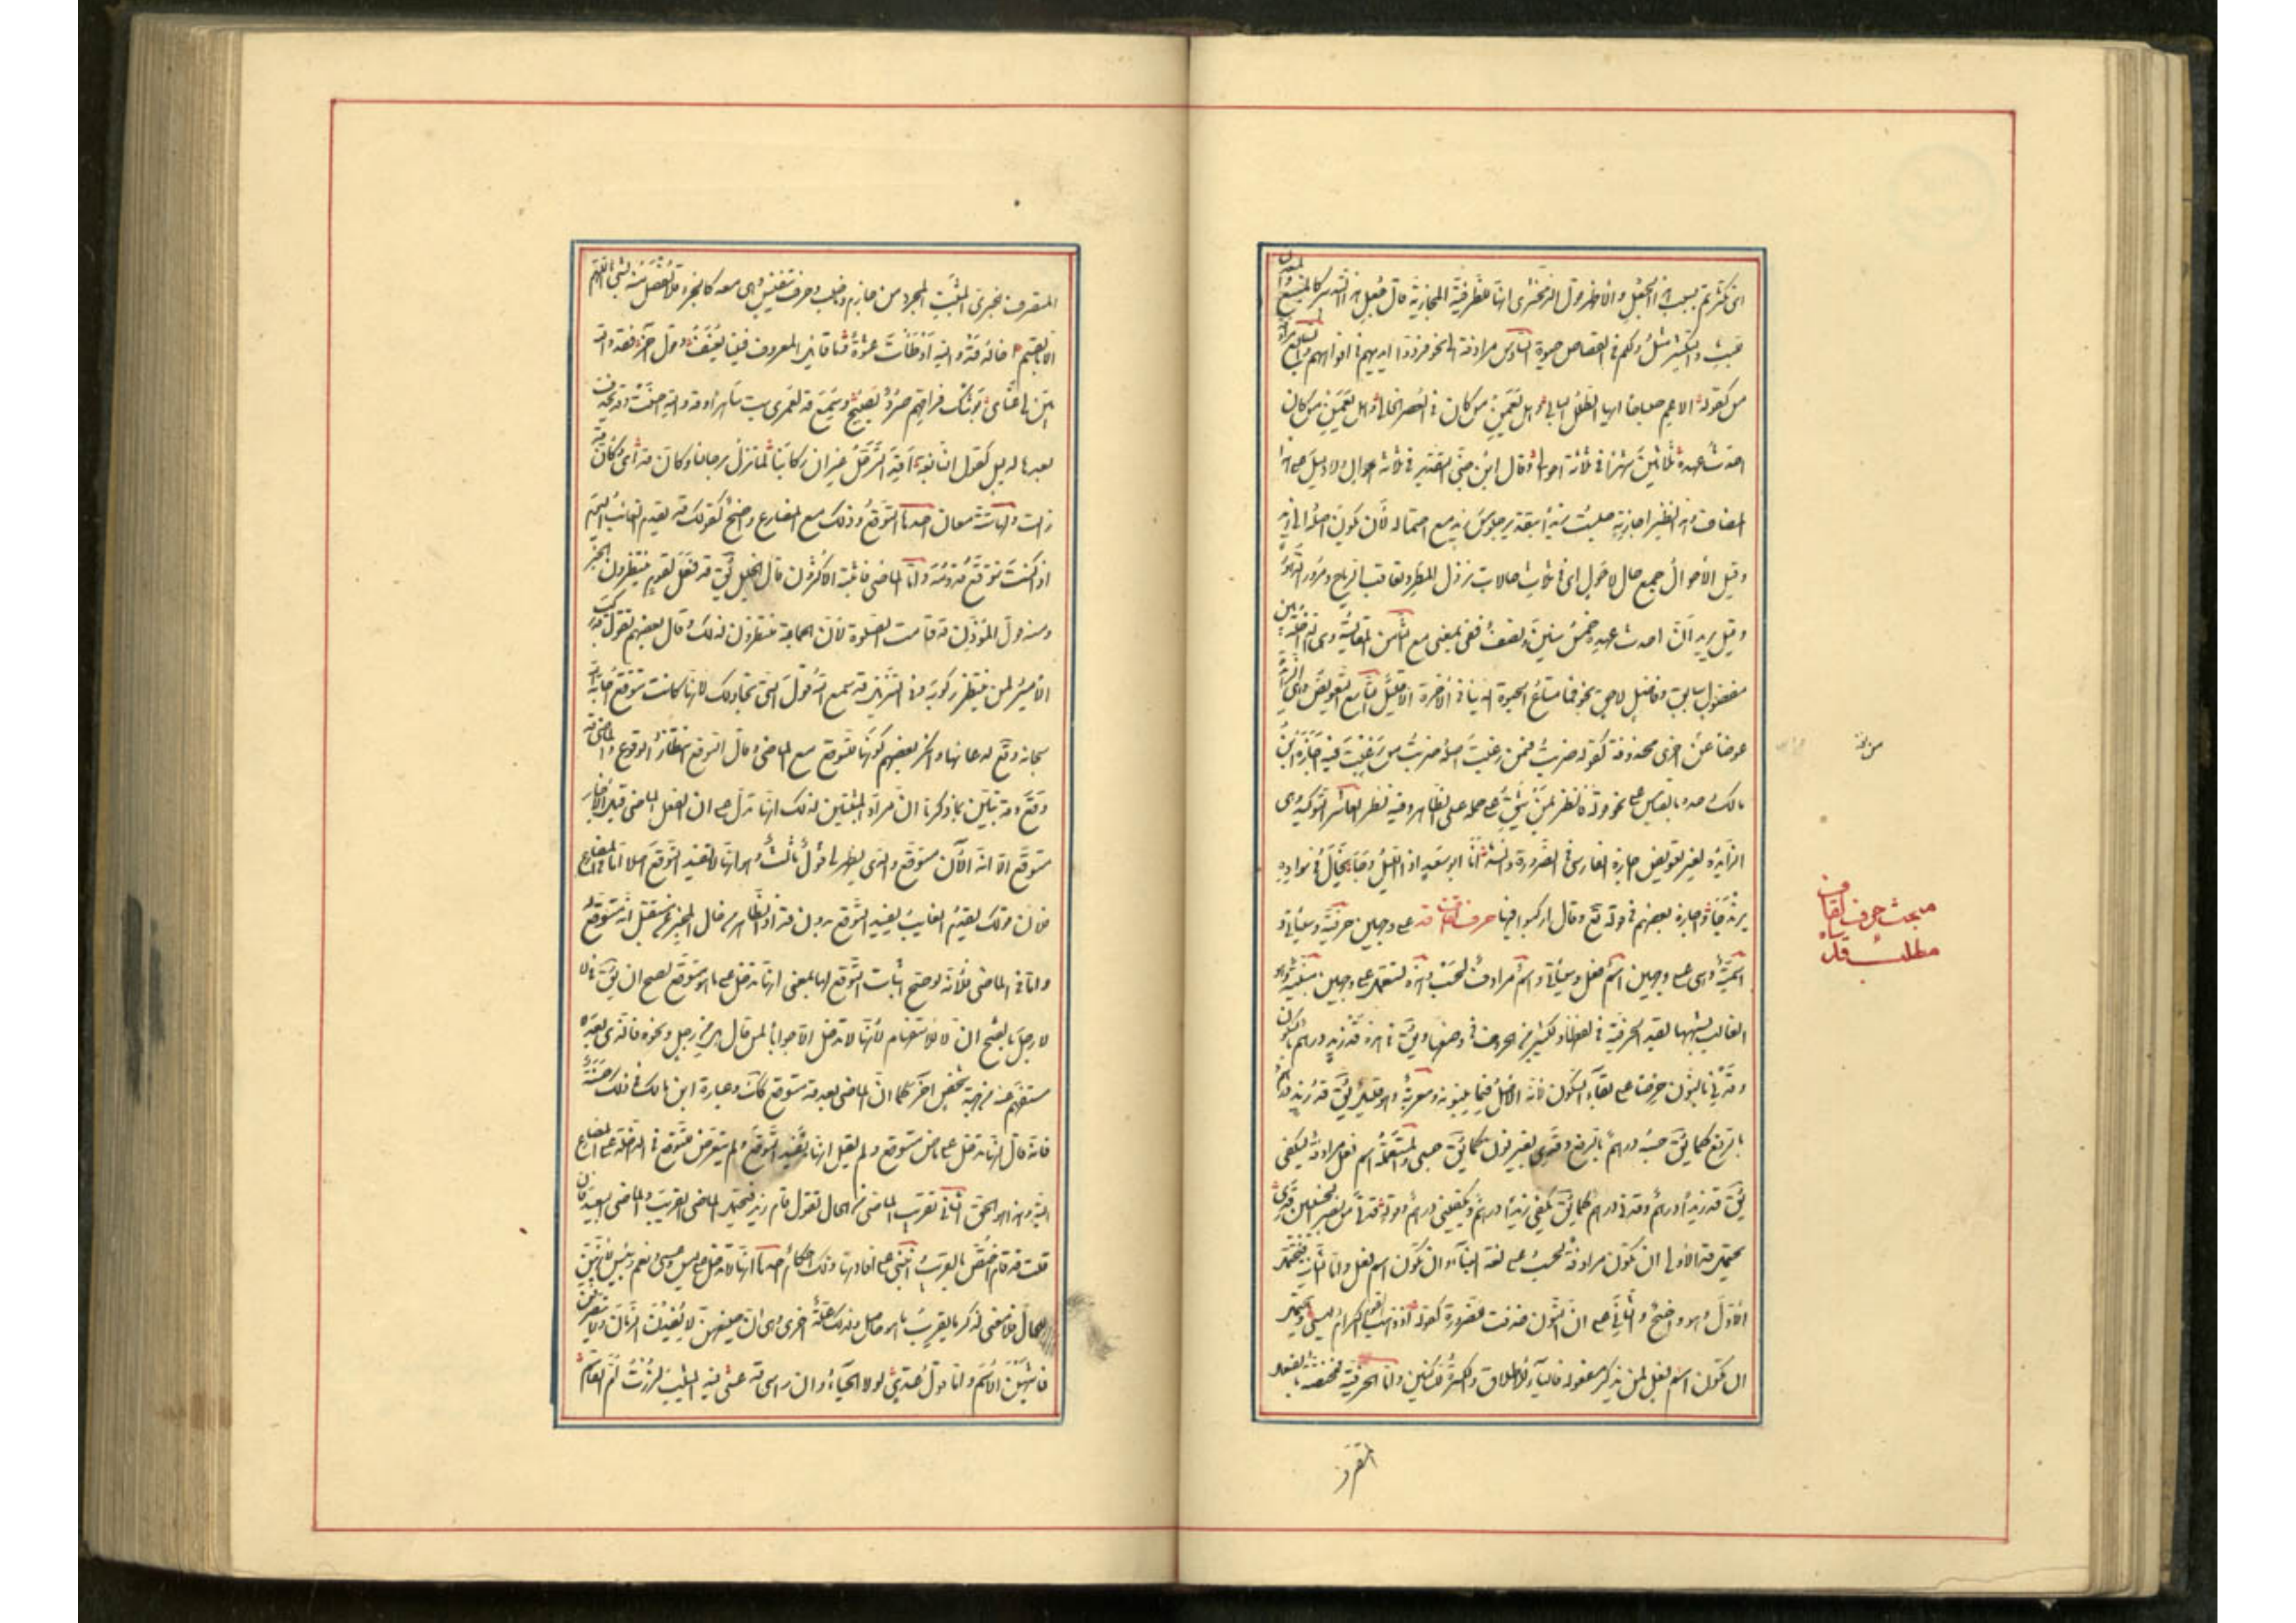 اى تكثركم بسبب هذا الجعل والاظهر قول الزمخشرى انها للظرفية المجازية قال جعل هذا التدبير كالمنبع او المعدن
للبث والتكثير مثل ولكم فى القصاص حيوة السادس مرادفة الى نحو فردوا ايديهم فى افواههم السابع مرادفة
من كقوله الا عم صباحا ايها الطلل البالى وهل يعمن من كان فى العصر الخالى وهل يعمن من كان
احدث عهده ثلثين شهرا فى ثلثة احوال وقال ابن جنى التقدير فى ثلثة احوال ولا دليل على هذا
المضاف وهذا نظير اجازته جلست زيدا بتقدير جلوس زيد مع احتماله لان يكون اصله الى زيد
وقيل الاحوال جمع حال لا حول اى فى ثلاث حالات نزول المطر وتعاقب الرياح ومرور الدهور
وقيل يريد ان احدث عهده خمس سنين ونصف ففى بمعنى مع الثامن المقايسة وهى الداخلة بين
مفضول سابق وفاضل لاحق نحو فما متاع الحيوة الدنيا فى الاخرة الا قليل التاسع التعويض وهى الزائدة
عوضا عن اخرى محذوفة كقولك ضربت فيمن رغبت اصله ضربت من رغبت فيه اجازه ابن
مالك وحده بالقياس على نحو قوله فانظر بمن تثق على حمله على الظاهر وفيه نظر العاشر التوكيد وهى
الزايدة لغير تعويض اجازه الفارسى فى الضرورة وانشد انا ابو سعد اذا الليل دجا يخال فى سواده
يرندجا واجازه بعضهم فى قوله تع وقال اركبوا فيها حرف القاف قد على وجهين حرفية وستأتى و
اسمية وهى على وجهين اسم فعل وستأتى واسم مرادف لحسب وهذه تستعمل على وجهين مبنية وهو
الغالب لشبهها بقد الحرفية فى لفظها ولكثير من الحروف فى وضعها ويق فى هذه قد زيد درهم بالسكون
وقدنى بالنون حرصا على بقاء السكون لانه الاصل فيما يبنونه ومعربة وهو قليل يق قد زيد درهم
بالرفع كما يق حسبه درهم بالرفع وقدى بغير نون كما يق حسبى والمستعملة اسم فعل مرادفة ليكفى
يق قد زيدا درهم وقدنى درهم كما يق يكفى زيدا درهم ويكفينى درهم وقوله قدنى من نصر الخبيبين قدى
تحتمل قد الاولى ان تكون مرادفة لحسب على لغة البناء وان تكون اسم فعل واما الثانية فتحتمل
الاول وهو واضح والثانى على ان النون حذفت للضرورة كقوله اذ ذهب القوم الكرام ليسى ويحتمل
ان تكون اسم فعل لمن يذكر مفعوله فالياء للاطلاق والكسرة للساكنين واما الحرفية فمختصة بالفعل
من نفذ
مبحث حرف القاف
مطلب قد
المتصرف
المتصرف الخبرى المثبت المجرد من جازم وناصب وحرف تنفيس وهى معه كالجزء فلا تفصل منه بشئ اللهم
الا بالقسم اخالد قد والله اوطأت عشوة وما قائل المعروف فينا يعنف وقول آخر فقد والله
بين لى عنائى بوشك فراقهم صرد يصيح وسمع قد لعمرى بت ساهرا وقد والله احسنت وقد يحذف
بعدها لدليل كقول النابغة افد الترحل غير ان ركابنا لما تزل برحالنا وكان قد اى وكان قد
زالت ولها ستة معان احدها التوقع وذلك مع المضارع واضح كقولك قد يقدم الغائب اليوم
اذا كنت تتوقع قدومه واما الماضى فاثبته الاكثرون قال الخليل يق قد فعل لقوم ينتظرون الخبر
ومنه قول المؤذن قد قامت الصلوة لان الجماعة منتظرون لذلك وقال بعضهم تقول قد ركب
الامير لمن ينتظر ركوبه وفى التنزيل قد سمع الله قول التى تجادلك لانها كانت تتوقع اجابة الله
سبحانه وتع لدعائها وانكر بعضهم كونها للتوقع مع الماضى وقال التوقع انتظار الوقوع والماضى قد
وقع وقد تبين بما ذكرنا ان مراد المثبتين لذلك انها تدل على ان الفعل الماضى قبل الاخبار
متوقع لا انه الآن متوقع والذى يظهر لى قول ثالث وهو انها لا تفيد التوقع اصلا اما فى المضارع
فلان قولك يقدم الغايب يفيد التوقع بدون قد اذ الظاهر من حال المخبر عن مستقبل انه متوقع له
واما فى الماضى فلانه لو صح اثبات التوقع لها بمعنى انها تدخل على ما هو متوقع لصح ان يق فى لا
لا رجل بالفتح ان لا للاستفهام لانها لا تدخل الا جوابا لمن قال هل من رجل ونحوه فالذى بعد لا
مستفهم عنه من جهة شخص آخر كما ان الماضى بعد قد متوقع كك وعبارة ابن مالك فى ذلك حسنة
فانه قال انها تدخل على ماض متوقع ولم يقل انها تفيد التوقع ولم يتعرض للتوقع فى الداخلة على المضارع
البتة وهذا هو الحق الثانى تقريب الماضى من الحال تقول قام زيد فيحتمل الماضى القريب والماضى البعيد فان
قلت قد قام اختص بالقريب انبنى على افادتها ذلك احكام احدها انها لا تدخل على ليس وعسى ونعم وبئس لانهن
للحال فلا معنى لذكر ما يقرب ما هو حاصل ولذلك علة اخرى وهى ان صيغهن لا يفدن الزمان ولا يتصرفن
فاشبهن الاسم واما قول عدى لولا الحياء وان راسى قد عسى فيه المشيب لزرت ام القاسم